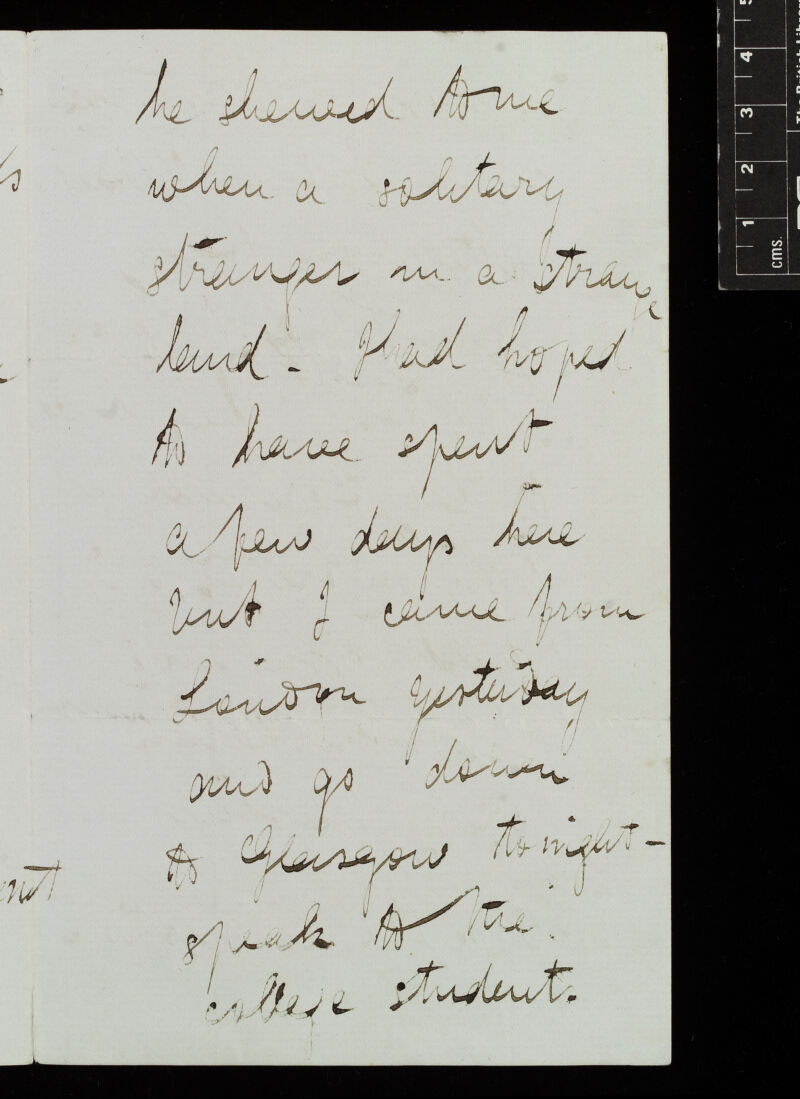 he shewed to me
when a solitary
stranger in a strange
land - I had hoped
to have spent
a few days here
but I came from
London yesterday
and go down
to Glasgow to night -
speak to the
college students
1
2
3
4
5
cms.